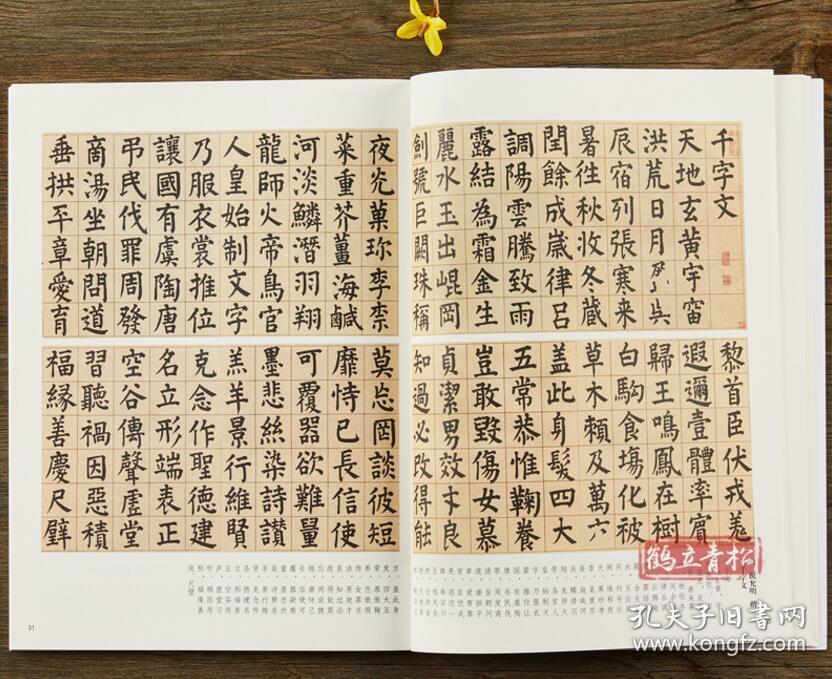 千字文
天地玄黃宇宙
洪荒日月盈昃
辰宿列張寒来
暑往秋收冬藏
閏餘成歲律呂
調陽雲騰致雨
露結為霜金生
麗水玉出崐岡
劍號巨闕珠稱
夜光菓珎李柰
菜重芥薑海鹹
河淡鱗潛羽翔
龍師火帝鳥官
人皇始制文字
乃服衣裳推位
讓國有虞陶唐
弔民伐罪周發
商湯坐朝問道
垂拱平章愛育
黎首臣伏戎羌
遐邇壹體率賓
歸王鳴鳳在樹
白駒食場化被
草木賴及萬方
蓋此身髮四大
五常恭惟鞠養
豈敢毀傷女慕
貞潔男效才良
知過必改得能
莫忘罔談彼短
靡恃己長信使
可覆器欲難量
墨悲絲染詩讚
羔羊景行維賢
克念作聖德建
名立形端表正
空谷傳聲虛堂
習聽禍因惡積
福緣善慶尺璧
鹤立青松
祝允明
千字文
31
孔夫子旧书网
www.kongfz.com